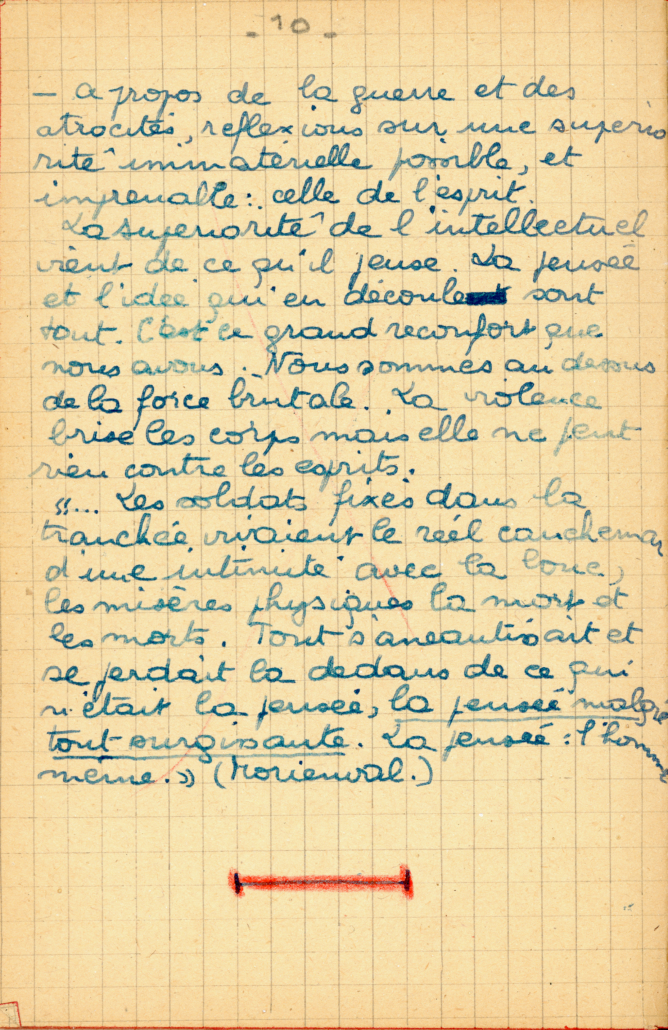 - 10 -
— a propos de la guerre et des
atrocités, reflexions sur une superio
rité immatérielle possible, et
imprenable: celle de l'esprit.
La superiorité de l'intellectuel
vient de ce qu'il pense. La pensée
et l'idee qui en découle sont
tout. C'est ce grand reconfort que
nous avons. Nous sommes au dessus
de la force brutale. La violence
brise les corps mais elle ne peut
rien contre les esprits.
"... Les soldats fixés dans la
tranchée vivaient le réel cauchemar
d'une intimité avec la boue,
les misères physiques la mort et
les morts. Tout s'aneantissait et
se perdait la dedans de ce qui
n'était la pensée, la pensée malgré
tout surgissante. La pensée : l'homme
même.» (Morienval.)